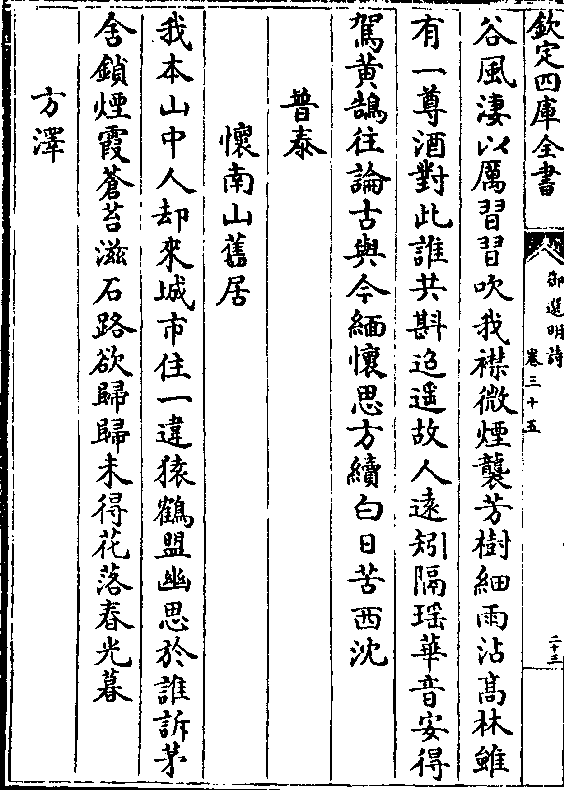 欽定四庫全書
御選明詩
卷三十五
二十三
谷風淒以厲習習吹我襟微煙襲芳樹細雨沾髙林雖
有一尊酒對此誰共斟迢遥故人遠矧隔瑶華音安得
駕黃鵠往論古與今緬懷思方續白日苦西沈
普泰
懷南山舊居
我本山中人却來城市住一違猿鶴盟幽思於誰訴茅
舍鎖煙霞蒼苔滋石路欲歸歸未得花落春光暮
方澤